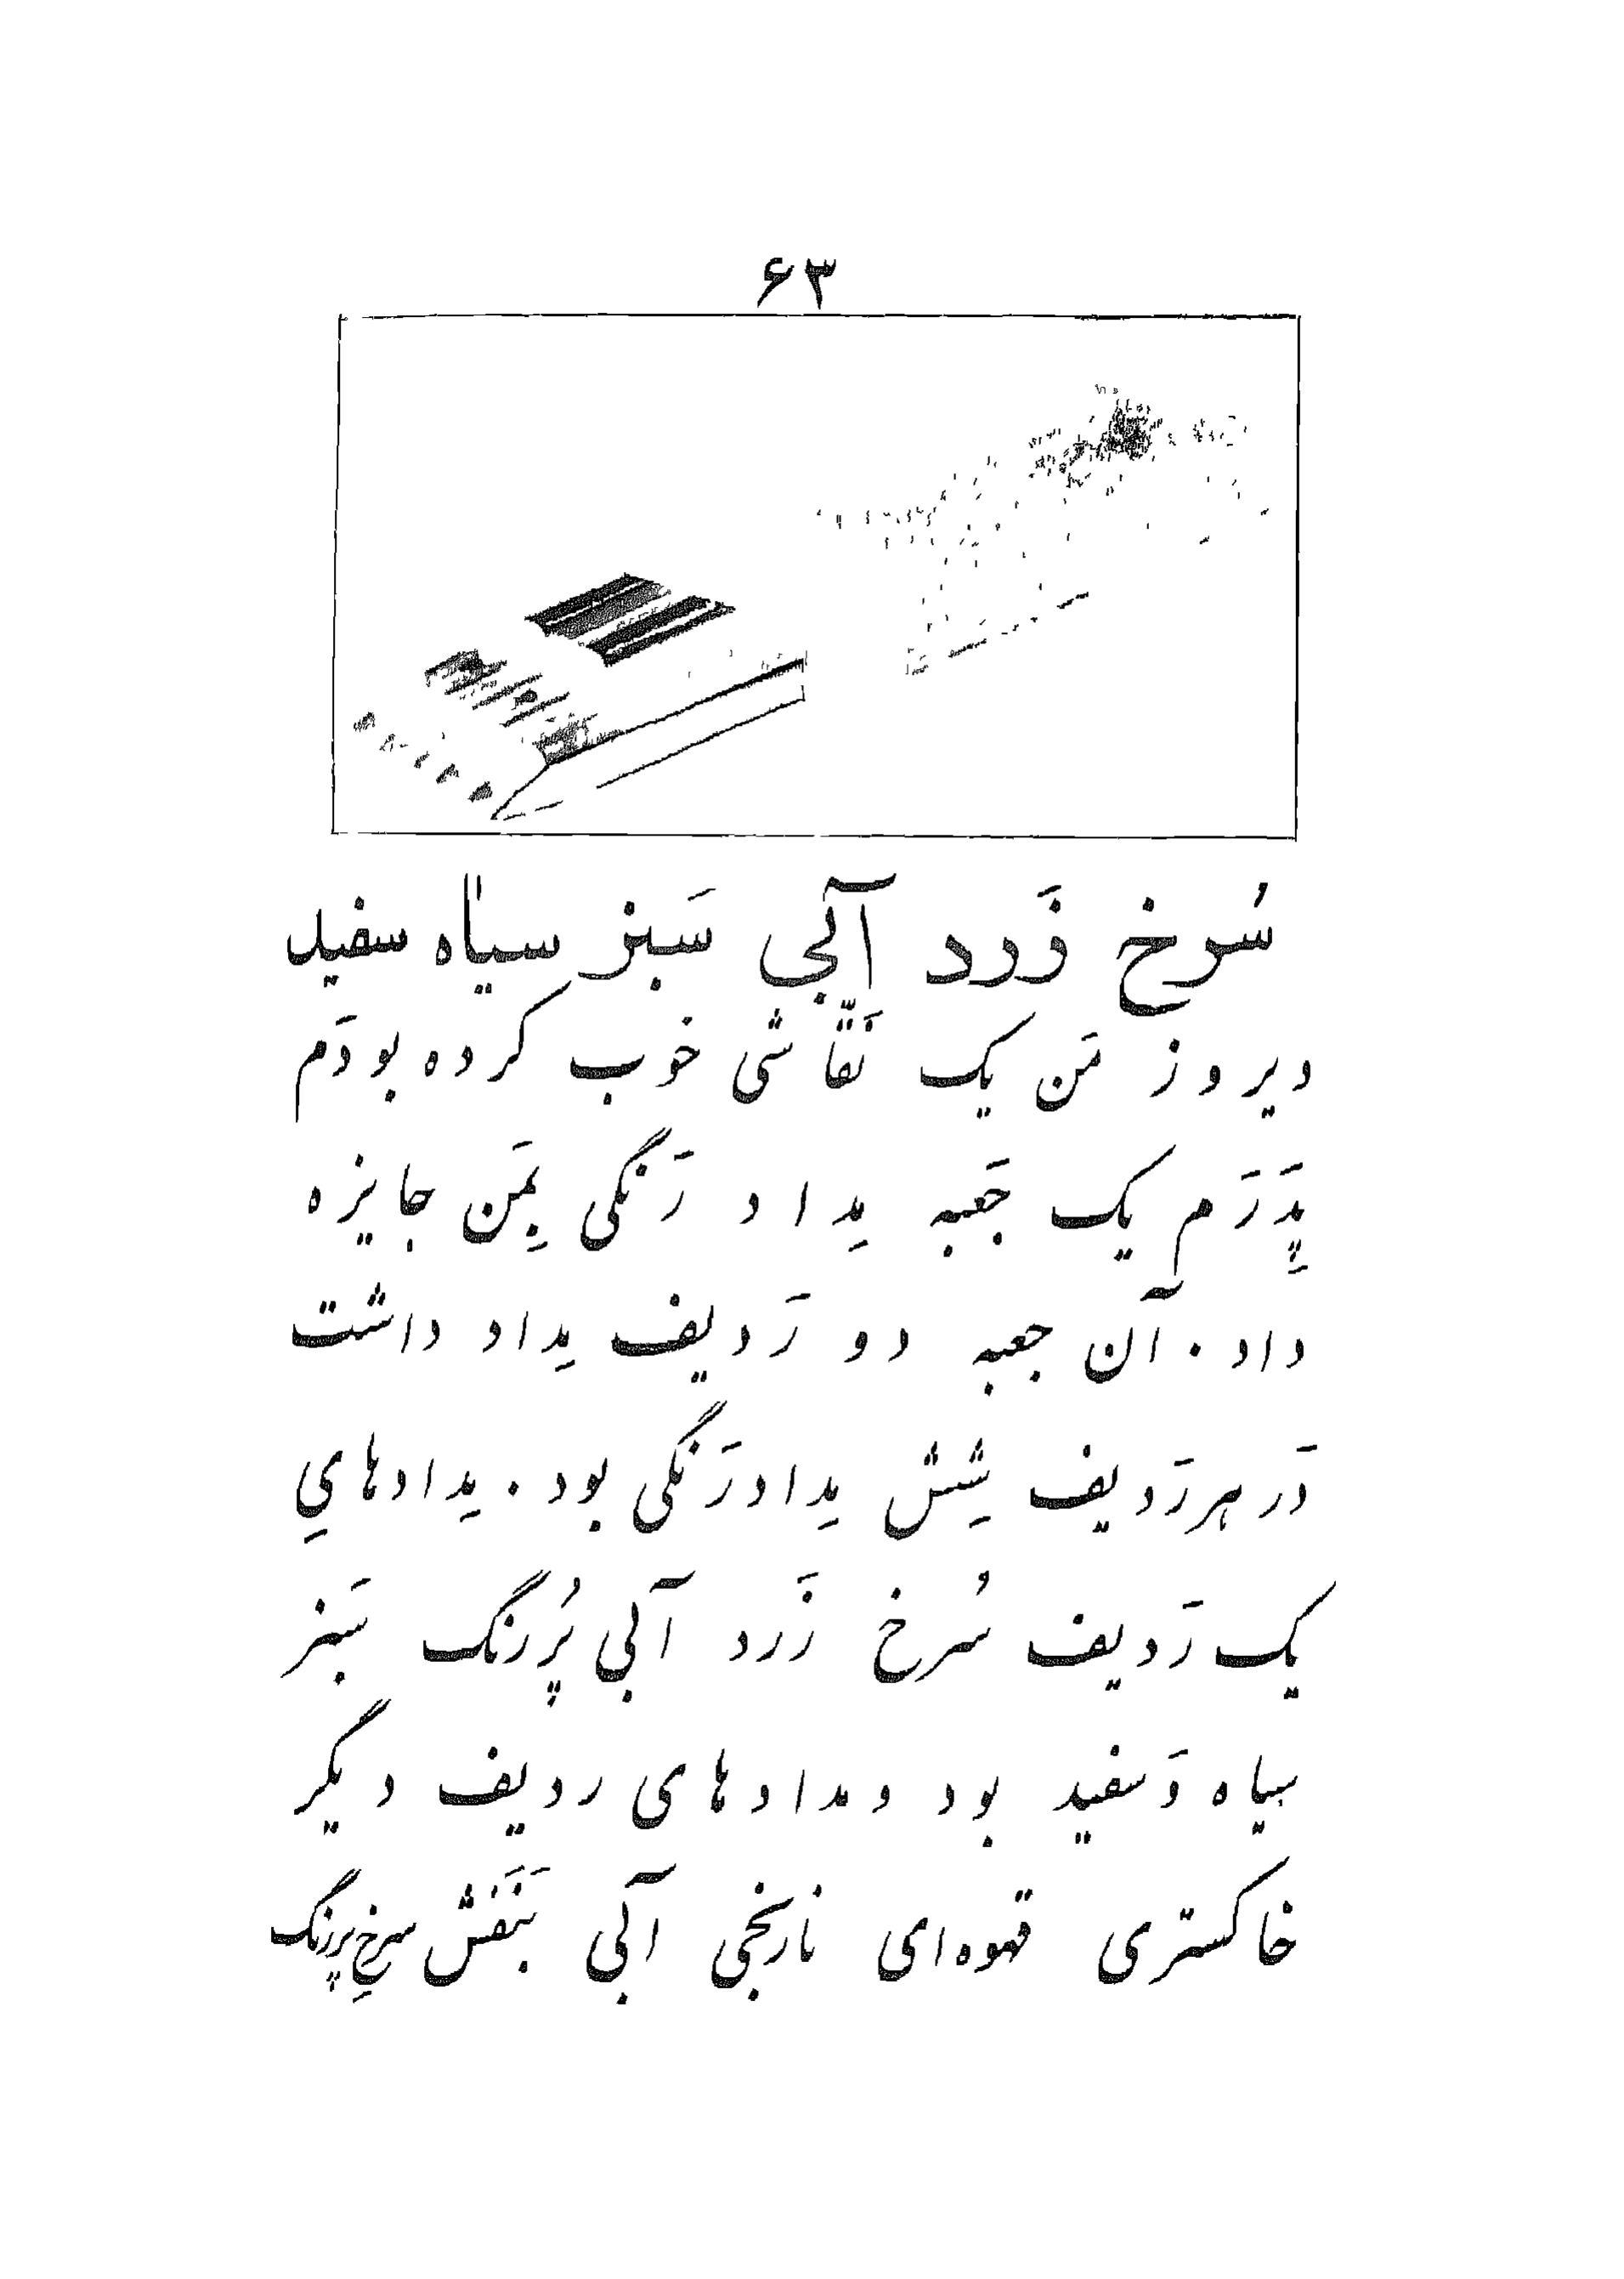 ۶۳
سُرخ زَرد آبی سَبز سیاه سفید
دیروز مَن یک نَقّاشی خوب کرده بودَم
پِدَرَم یک جَعبه مِداد رَنگی بِمَن جایزه
داد. آن جعبه دو رَدیف مِداد داشت
دَر هر رَدیف شِش مِداد رَنگی بود. مِدادهایِ
یک رَدیف سُرخ زَرد آبی پُررنگ سَبز
سیاه وَ سفید بود و مدادهای ردیف دیگر
خاکستری قهوه‌ای نارنجی آبی بَنَفش سرخِ پررنگ